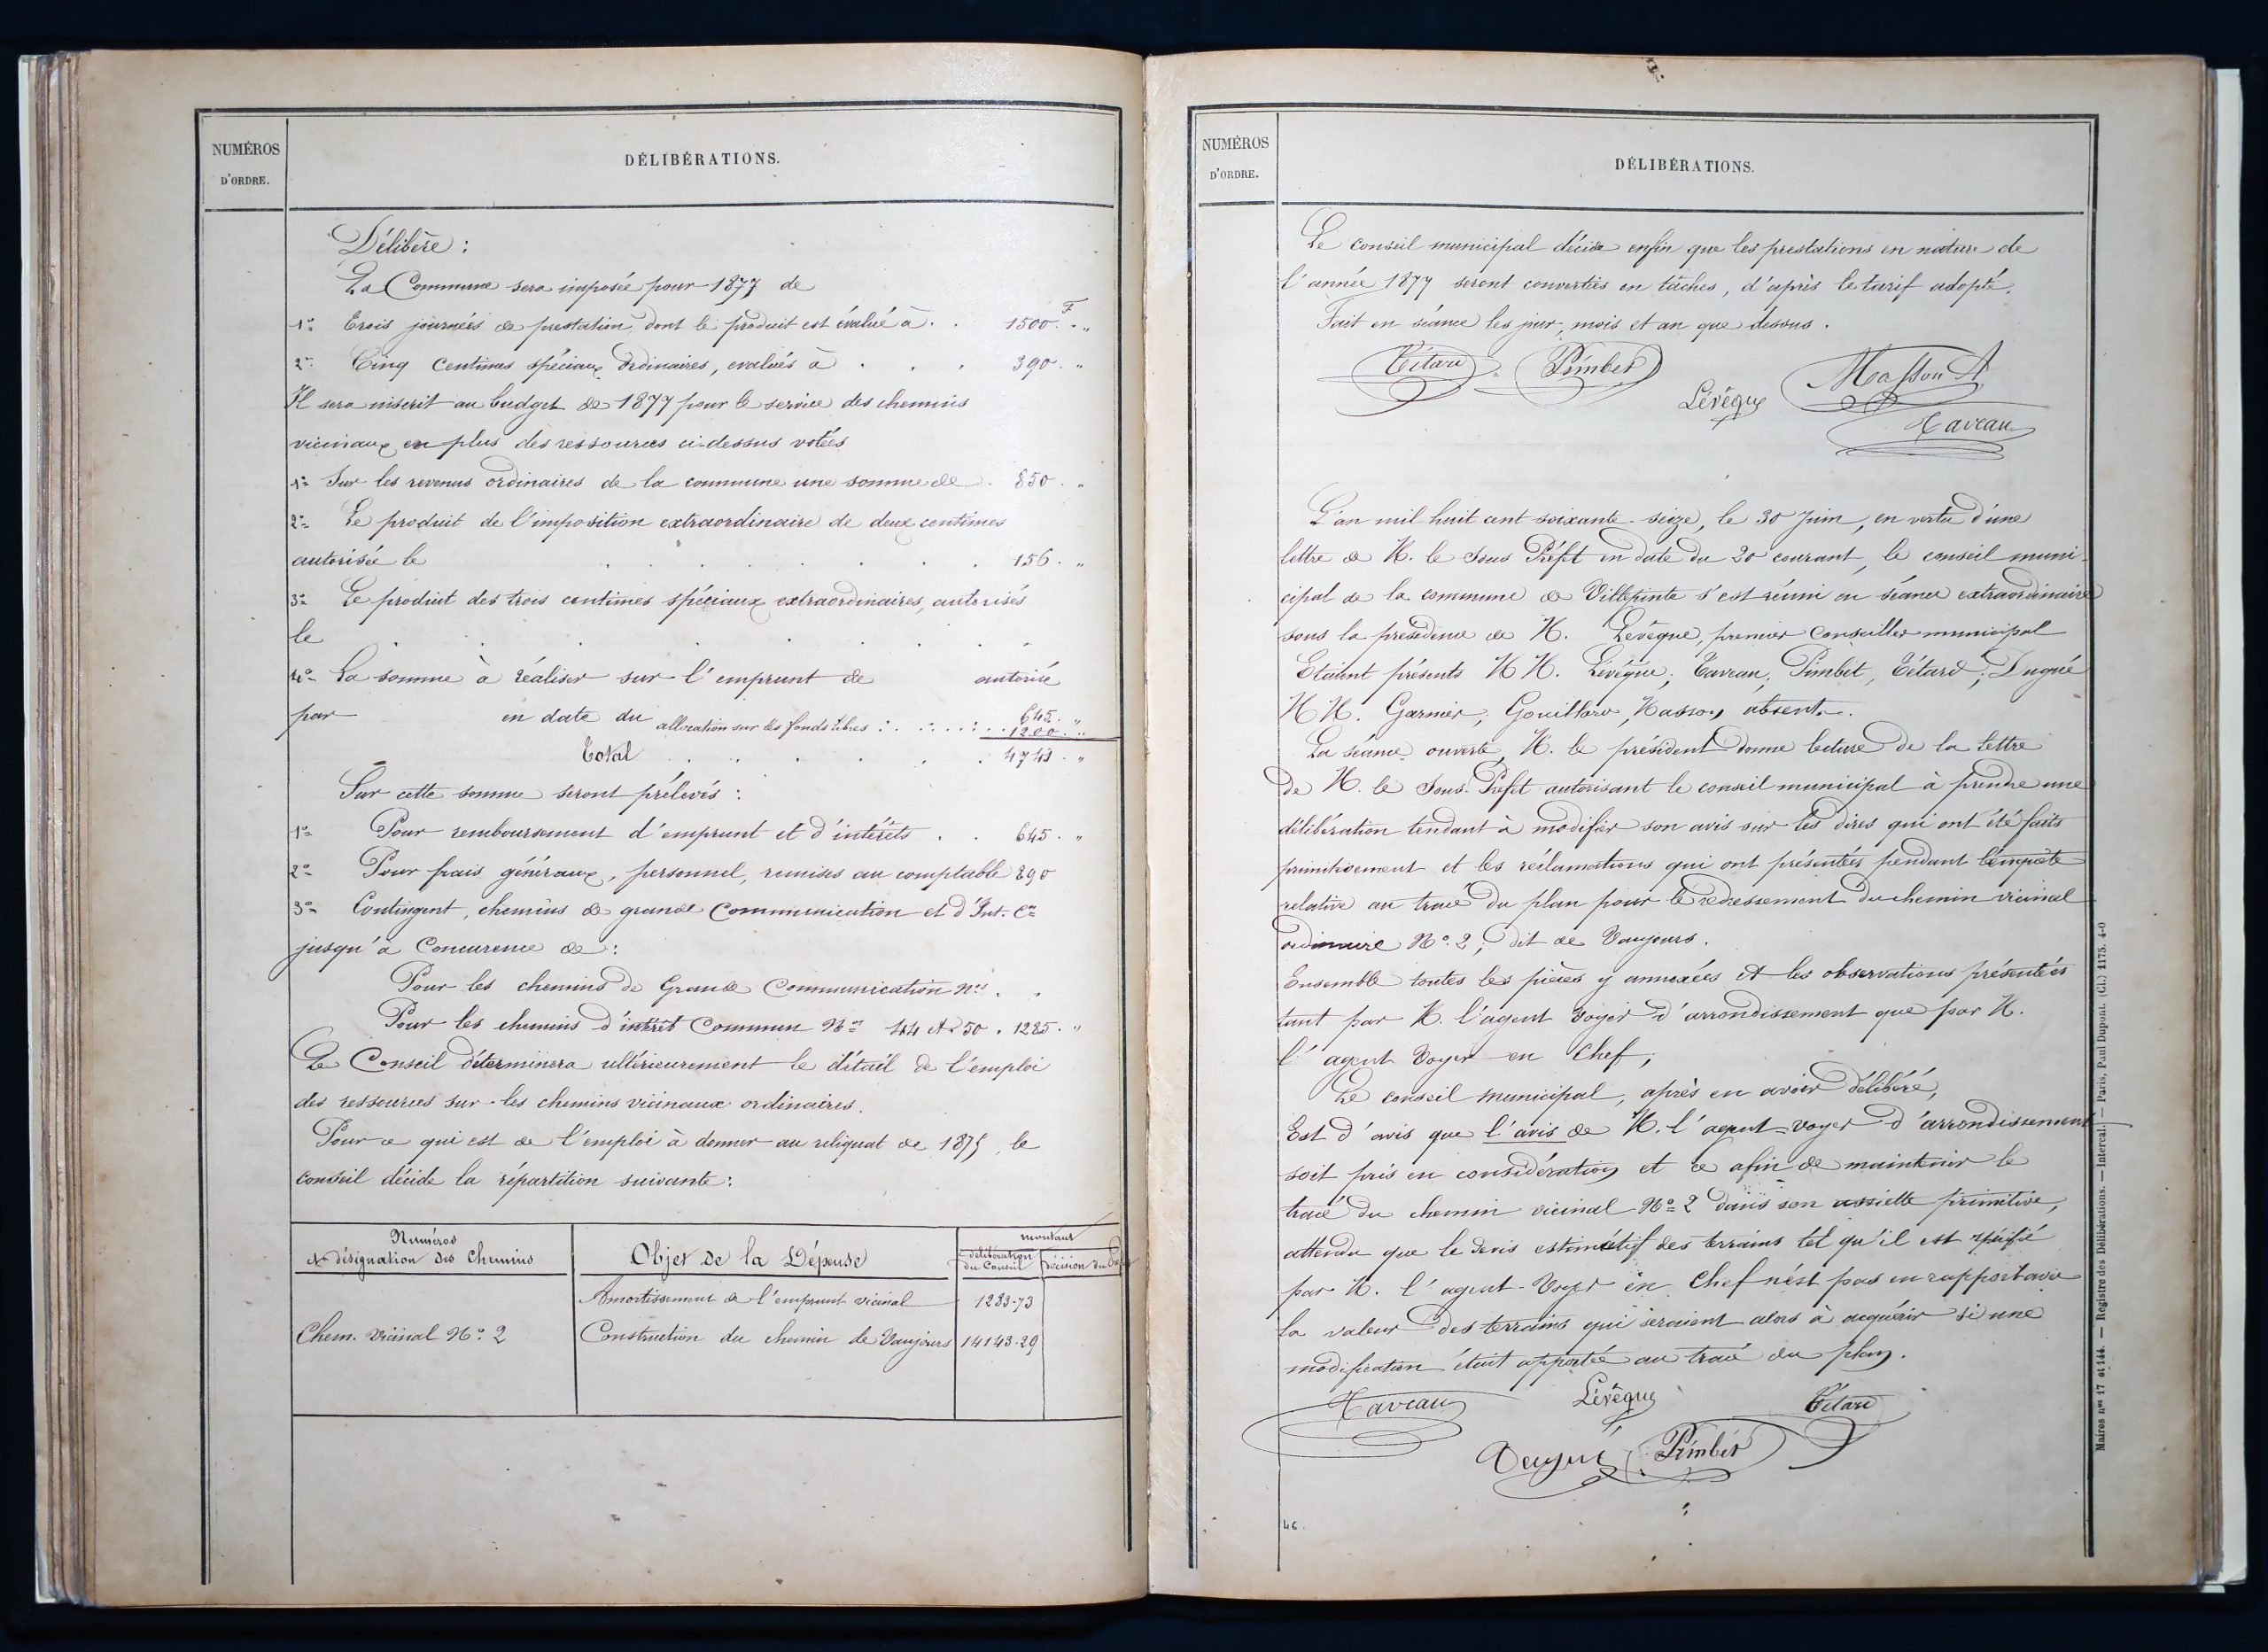 NUMÉROS
D'ORDRE.
DÉLIBÉRATIONS.
Délibère :
La Commune sera imposée pour 1877 de
1° Trois journées de prestation, dont le produit est évalué à . . 1500 F. "
2° Cinq Centimes spéciaux ordinaires, evalués à . . . 390. "
Il sera inscrit au budget de 1877 pour le service des chemins
vicinaux en plus des ressources ci-dessus votées
1° Sur les revenus ordinaires de la commune une somme de . 850. "
2° Le produit de l'imposition extraordinaire de deux centimes
autorisée le . . . . . . . 156. "
3° Le produit des trois centimes spéciaux extraordinaires, autorisés
le . . . . . . . .
4° La somme à réaliser sur l'emprunt de autorisée
par en date du 645. "
allocation sur les fonds libres : . . . . : . . 1200. "
Total . . . . . . 4741. "
Sur cette somme seront prélevés :
1° Pour remboursement d'emprunt et d'intérêts . . 645. "
2° Pour frais généraux, personnel, remises au comptable 290
3° Contingent, chemins de grande Communication et d'Int. Cn
jusqu'à Concurence de :
Pour les chemins de Grande Communication nos . .
Pour les chemins d'intérêt Commun Nos 44 et 50 . 1285. "
Le Conseil déterminera ultérieurement le détail de l'emploi
des ressources sur les chemins vicinaux ordinaires.
Pour ce qui est de l'emploi à donner au reliquat de 1875, le
conseil décide la répartition suivante :
Numéros
et désignation des Chemins
Objet de la Dépense
montant
délibération
du Conseil
décision du
Amortissement de l'emprunt vicinal 1283-73
Chem. vicinal N° 2 Construction du chemin de Vaujours 14143-29
NUMÉROS
D'ORDRE.
DÉLIBÉRATIONS.
Le conseil municipal décide enfin que les prestations en nature de
l'année 1877 seront converties en tâches, d'après le tarif adopté.
Fait en séance les jour, mois et an que dessus.
Tétard Pimbet Masson A
Lévêque
Taveau
L'an mil huit cent soixante-seize, le 30 Juin, en vertu d'une
lettre de M. le Sous Préfet en date du 20 courant, le conseil muni-
cipal de la commune de Villepinte s'est réuni en séance extraordinaire
sous la présidence de M. Levêque, premier Conseiller municipal
Etaient présents MM. Lévêque, Taveau, Pimbet, Tétard, Dugué
MM. Garnier, Gouillard, Masson absents.
La séance ouverte, M. le président donne lecture de la lettre
de M. le Sous-Préfet autorisant le conseil municipal à prendre une
délibération tendant à modifier son avis sur les dires qui ont été faits
primitivement et les réclamations qui ont présentées pendant l'enquête
relative au tracé du plan pour le redressement du chemin vicinal
ordinaire N° 2, dit de Vaujours.
Ensemble toutes les pièces y annexées et les observations présentées
tant par M. l'agent voyer d'arrondissement que par M.
l'agent Voyer en Chef,
Le conseil municipal, après en avoir délibéré,
Est d'avis que l'avis de M. l'agent-voyer d'arrondissement
soit pris en considération et ce afin de maintenir le
tracé du chemin vicinal N° 2 dans son assiette primitive,
attendu que le devis estimatif des terrains tel qu'il est spécifié
par M. l'agent-Voyer en Chef n'est pas en rapport avec
la valeur des terrains qui seraient alors à acquérir si une
modification était apportée au tracé du plan.
Taveau Lévêque Tétard
Dugué Pimbet
46.
Maires nos 17 et 144. — Registre des Délibérations. — Intercal. — Paris, Paul Dupont. (Cl.) 1175. 4-0